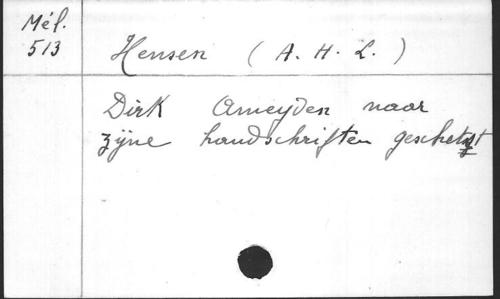 Mél.
513
Hensen ( A. H. L. )
Dirk Ameyden naar
zijne handschriften geschetst